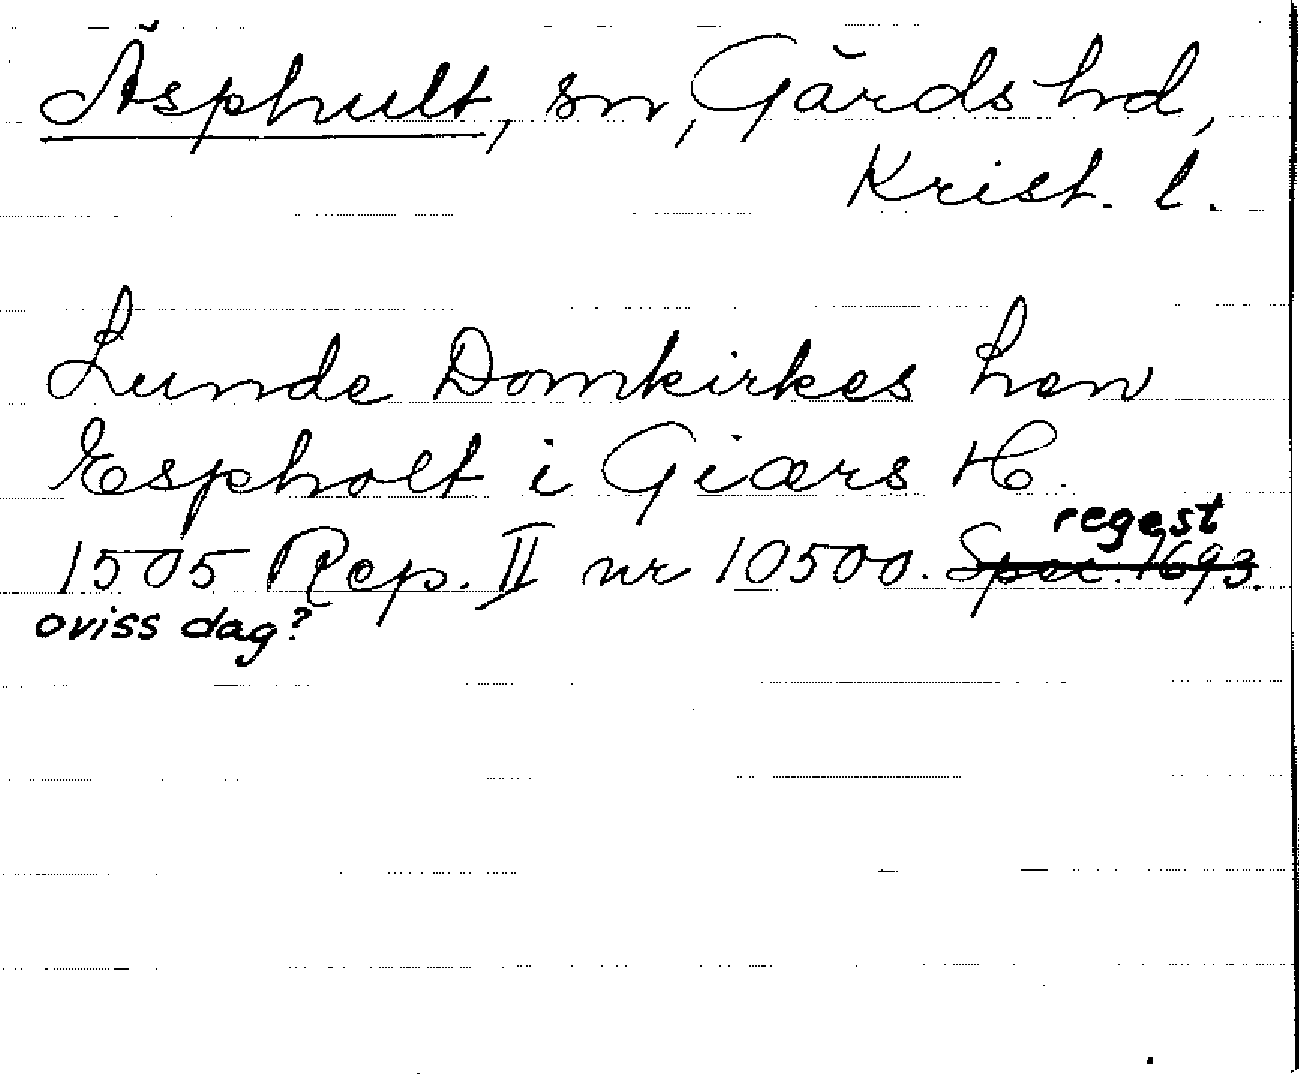 Åsphult, sn, Gärds hd,
Krist. l.
Lunde Domkirkes Len
Espholt i Giærs H.
regest
1505 Rep. II nr 10500. Spec. 1693.
oviss dag?